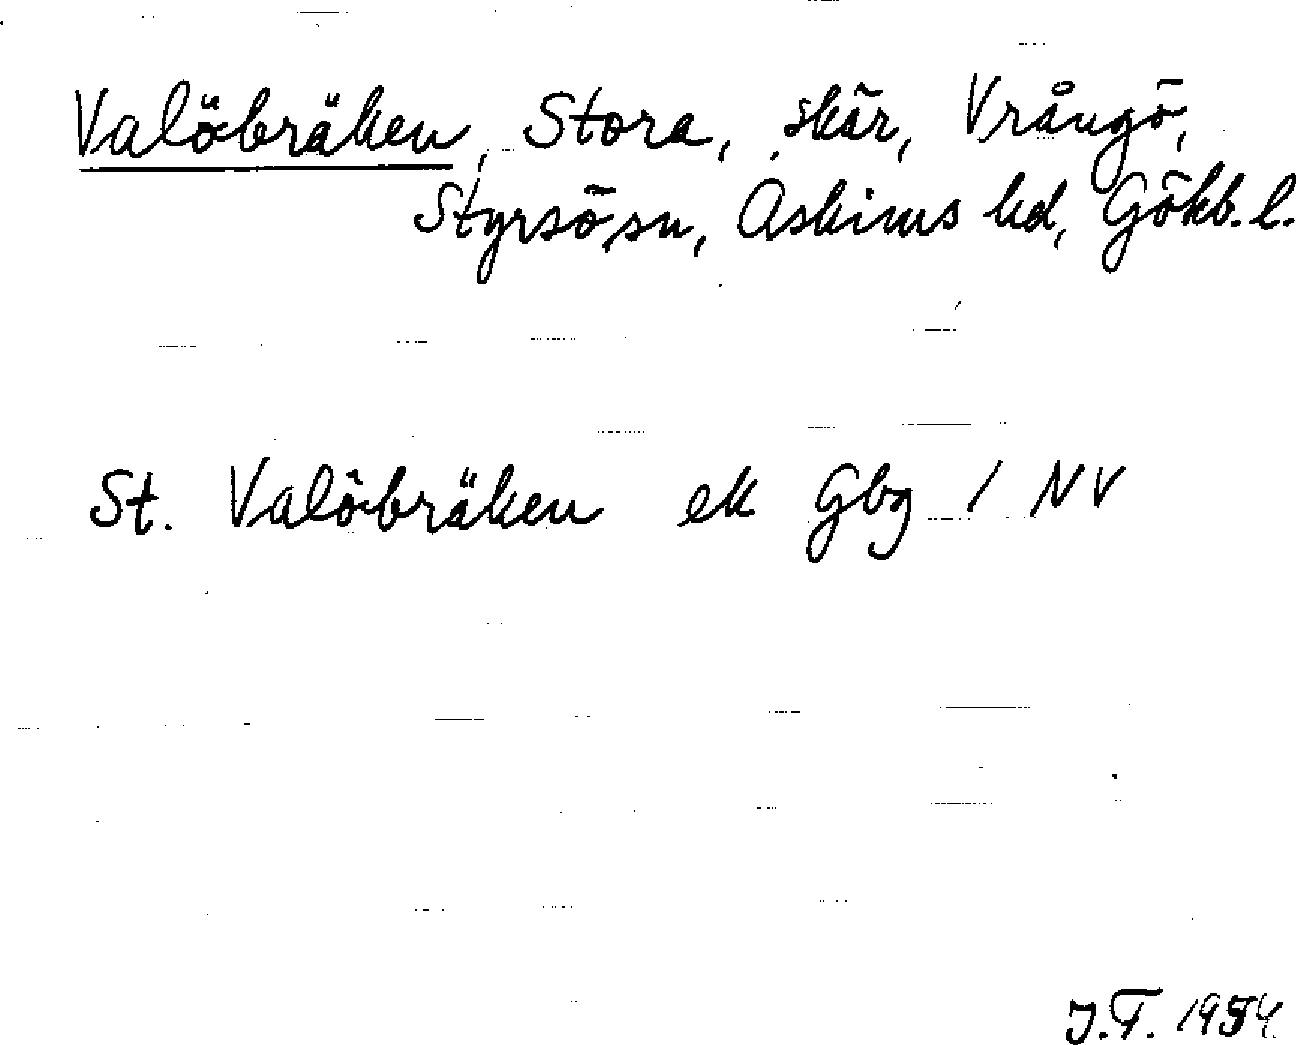 Valöbräken, Stora, skär, Vrångö,
Styrsö sn, Askims hd, Göhb. l.
St. Valöbräken ek Gbg / NV
J.F. 1954